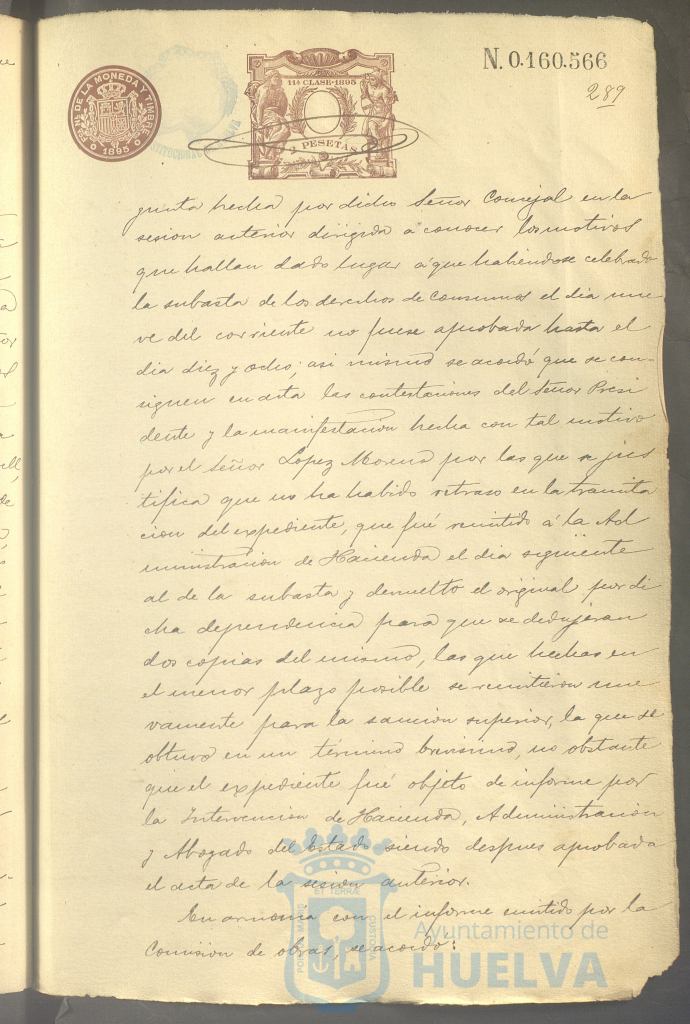 N. 0.160.566
289
NAL DE LA MONEDA Y TIMBRE
1895
11ª CLASE·1895
2 PESETAS
gunta hecha por dicho Señor Concejal en la
sesion anterior dirigida a conocer los motivos
que hallan dado lugar á que habiendose celebrado
la subasta de los derechos de consumos el dia nue
ve del corriente no fuese aprobada hasta el
dia diez y ocho; asi mismo se acordó que se con-
signen en acta las contestaciones del Señor Presi
dente y la manifestacion hecha con tal motivo
por el Señor Lopez Moreno por las que se jus
tifica que no ha habido retraso en la tramita
cion del expediente, que fué remitido á la Ad
ministracion de Hacienda el dia siguiente
al de la subasta y devuelto el original por di
cha dependencia para que se dedujeran
dos copias del mismo, las que hechas en
el menor plazo posible se remitieron nue
vamente para la sancion superior, la que se
obtuvo en un término brevisimo, no obstante
que el expediente fué objeto de informe por
la Intervencion de Hacienda, Administracion
y Abogado del Estado siendo despues aprobada
el acta de la sesion anterior.
En armonia con el informe emitido por la
Comision de obras, se acordó:
PORTUS MARIS ET TERRÆ CUSTODIA
Ayuntamiento de
HUELVA